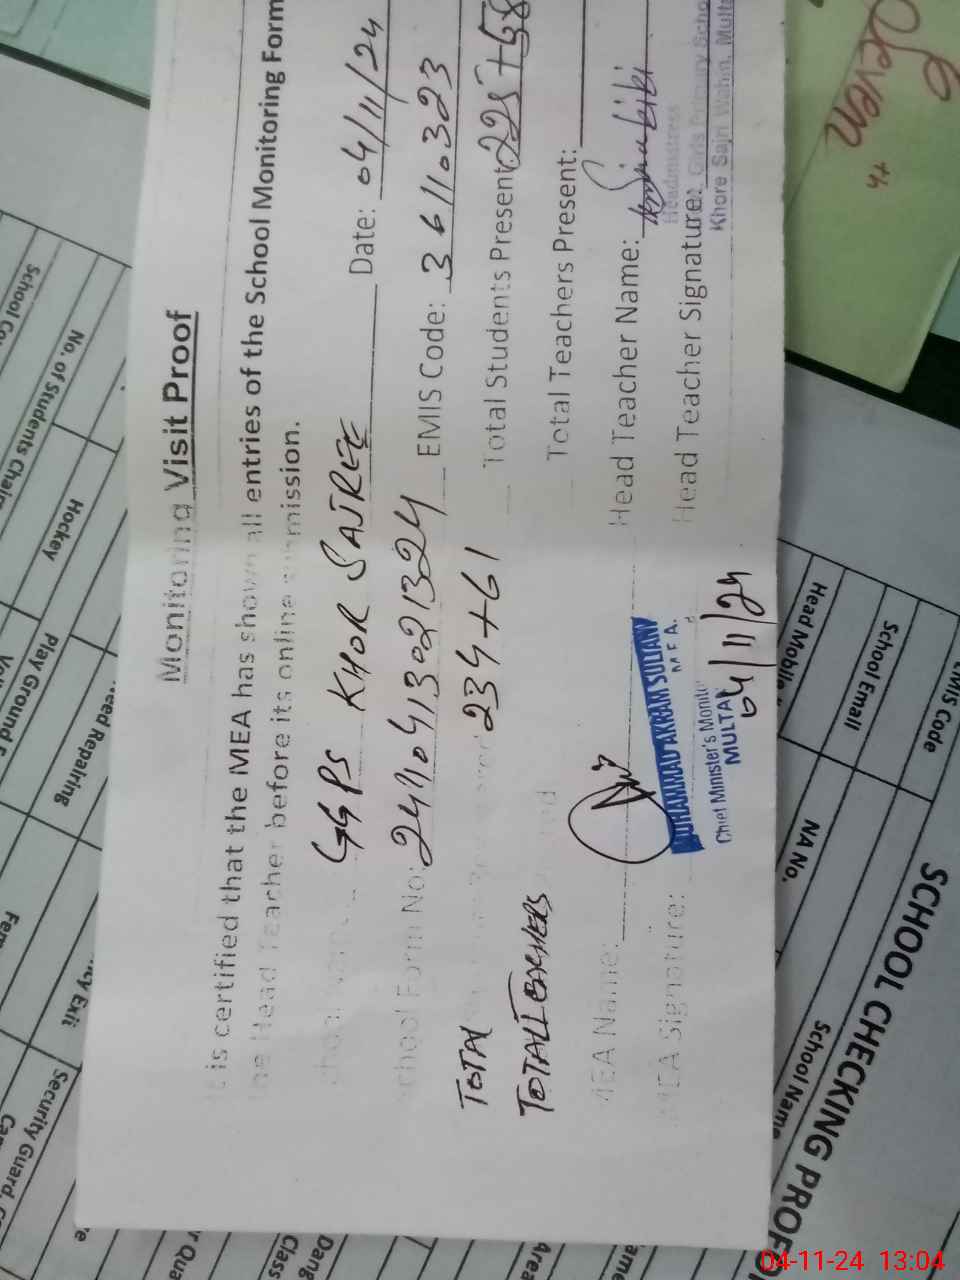 Monitoring Visit Proof
It is certified that the MEA has shown all entries of the School Monitoring Form
the Head Teacher before its online submission.
GGPS KHOR SAJREE Date: 04/11/24
School Form No: 2411041302 1324 EMIS Code: 36110323
TOTAL 234+61 Total Students Present 225+58
TOTAL TEACHERS Total Teachers Present:
MEA Name: Head Teacher Name: Bibi
MEA Signature: Head Teacher Signature:
MUHAMMAD AKRAM SULTAN
M E A.
Chief Minister's Monito
MULTAN
04/11/24
Headmistress
Girls Primary Scho
Khore Sajri Wahin, Mult
Eleven
th
School Co
No. of Students Chairs
Hockey
Play Ground
Need Repairing
Security Guard
Class
Area
SCHOOL CHECKING PROFO
School Name
EMIS Code
School Email
Head Mobile
NA No.
04-11-24 13:04